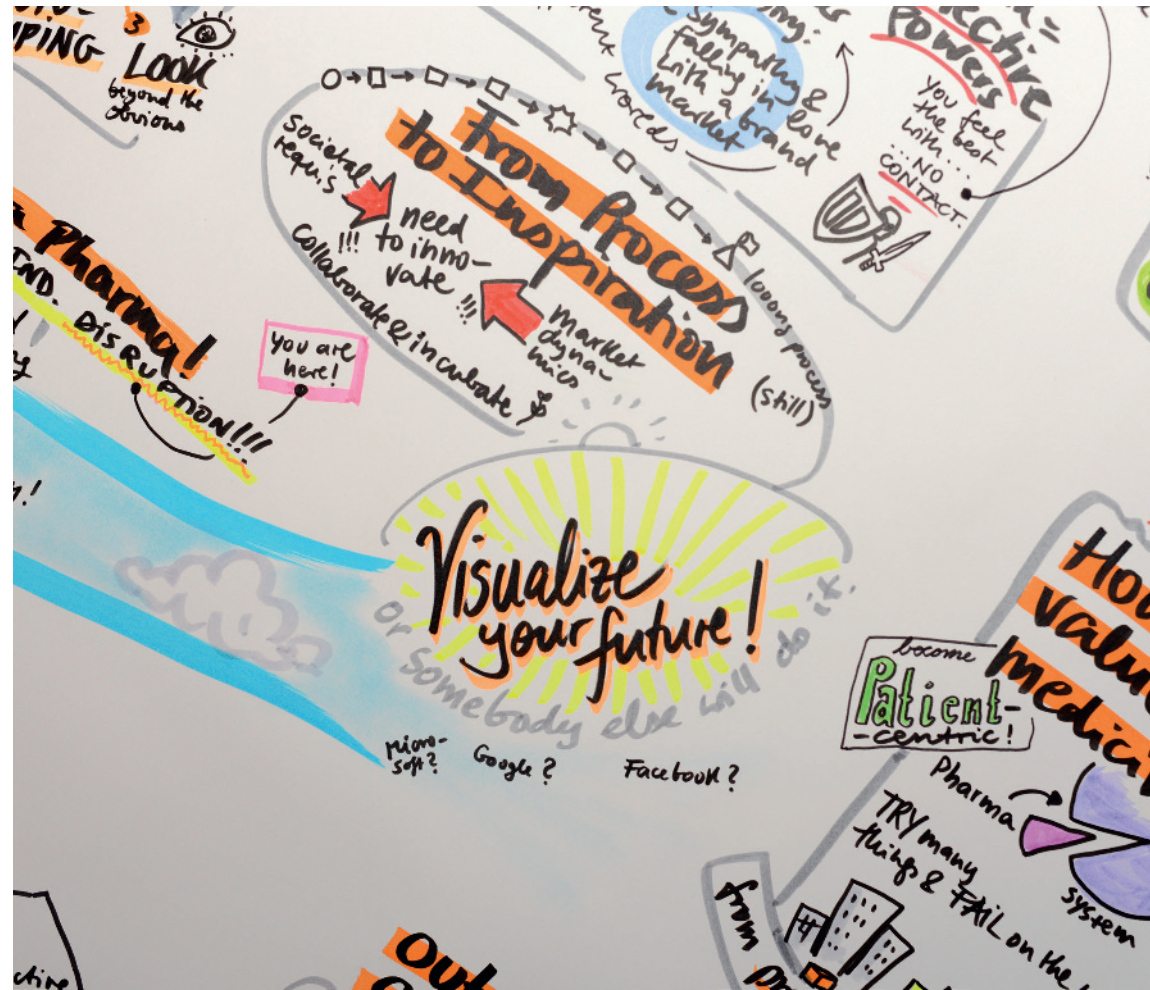 PING
3
LOOK
beyond the
obvious
sympathy &
falling in love
with a brand
market
Powers
You feel
the best
with...
...NO
CONTACT.
From Process
to Inspiration
societal
requis
need
to inno-
vate
!!!
!!!
market
dyna-
mics
collaborate & incubate
looong process
(still)
Pharma!
DISRUPTION!!!
you are
here!
Visualize
your future!
Or somebody else will do it.
Micro-
soft?
Google?
Facebook?
become
Patient-
-centric!
Pharma
system
TRY many
things & FAIL on the
from
Out